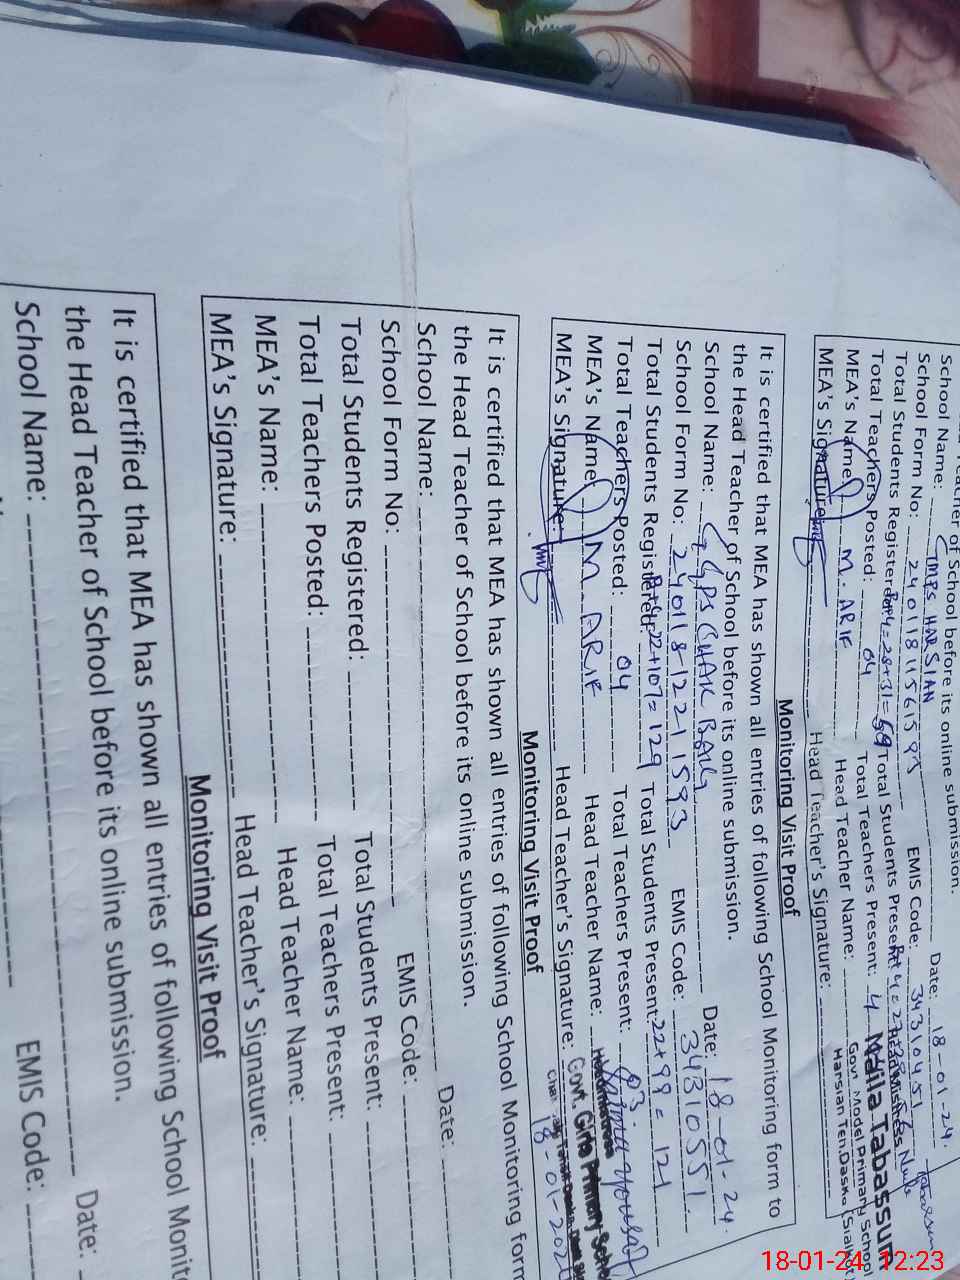 of School before its online submission.
School Name: GMPS HARSIAN Date: 18-01-24.
School Form No: EMIS Code: 34310451
Total Students Registered: 28+31=59 Total Students Present:
Total Teachers Posted: 04 Total Teachers Present: 4
MEA's Name: M. ARIF Head Teacher Name:
MEA's Signature: Head Teacher's Signature:
Madila Tabassum
Govt Model Primary School
Harsian Teh.Daska (Sialkot
Monitoring Visit Proof
It is certified that MEA has shown all entries of following School Monitoring form to
the Head Teacher of School before its online submission.
School Name: GGPS CHAK BAIG Date: 18-01-24.
School Form No: 2401181221593 EMIS Code: 34310551.
Total Students Registered: 22+107=129 Total Students Present: 22+99=121
Total Teachers Posted: 04 Total Teachers Present: 03.
MEA's Name: M. ARIF Head Teacher Name:
MEA's Signature: Head Teacher's Signature:
Headmistress
Govt. Girls Primary School
18-01-202
Monitoring Visit Proof
It is certified that MEA has shown all entries of following School Monitoring form
the Head Teacher of School before its online submission.
School Name: Date:
School Form No: EMIS Code:
Total Students Registered: Total Students Present:
Total Teachers Posted: Total Teachers Present:
MEA's Name: Head Teacher Name:
MEA's Signature: Head Teacher's Signature:
Monitoring Visit Proof
It is certified that MEA has shown all entries of following School Monit
the Head Teacher of School before its online submission.
School Name: Date:
EMIS Code:
18-01-24 12:23